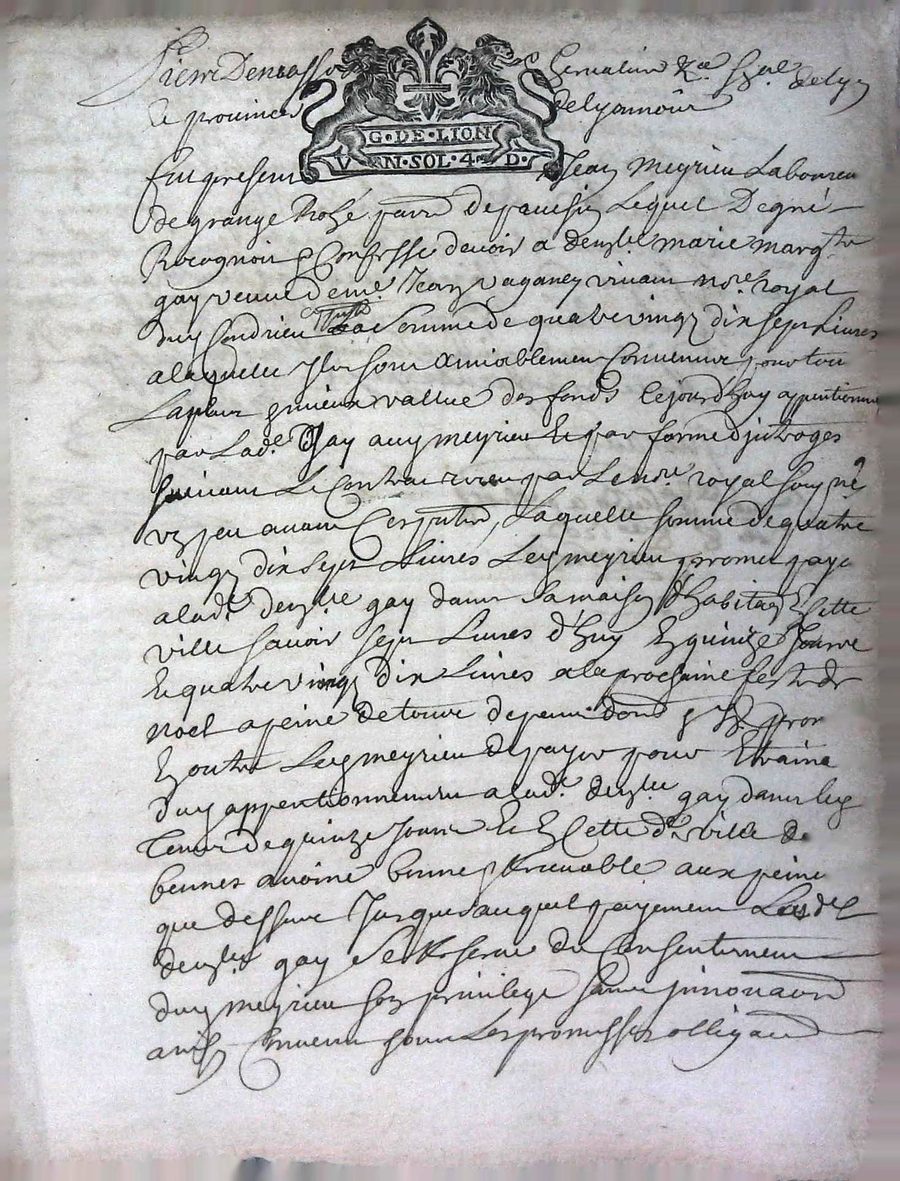 G·DE·LION
V N·SOL·4 D·
de lyonnois
Fut present Jean Meyrieu Laboureur
de grange Rozé parr de Lequel De gré
Recognoit & Confesse devoir a dem^lle marie marg^te
gay veuve de me Jean vaganey vivant no^re royal
duy la Somme de quatre vingt dix sept Livres
a laquelle Ilz sont amiablement Convenus pour
La plus & mieux vallue des fonds Cejourdhuy
par Lad^e Gay auy meyrieu &
suivant Le Contrat receu par Le no^re royal soub^né
un peu avant Ces presentes, Laquelle somme de quatre
vingt dix sept Livres Ley meyrieu promet paye
a lad^e dem^lle gay dans sa maison d'habitaon Cette
ville savoir sept Livres d'huy En quinze Jours
& quatre vingt dix Livres a la prochaine feste de
noel a peine de tous depens dom
En outre Ley meyrieu de payer pour Etraine
duy a lad^e dem^lle gay dans ley
Terme de quinze Jours & En Cette d^e ville
bennes avoine bonne & Recevable aux peine
que dessus Jusques auquel payement Lad^e
dem^lle gay Se Reserve du Consentement
duy meyrieu son privilege sans
ainsy Convenu sous Les promesses obligaon